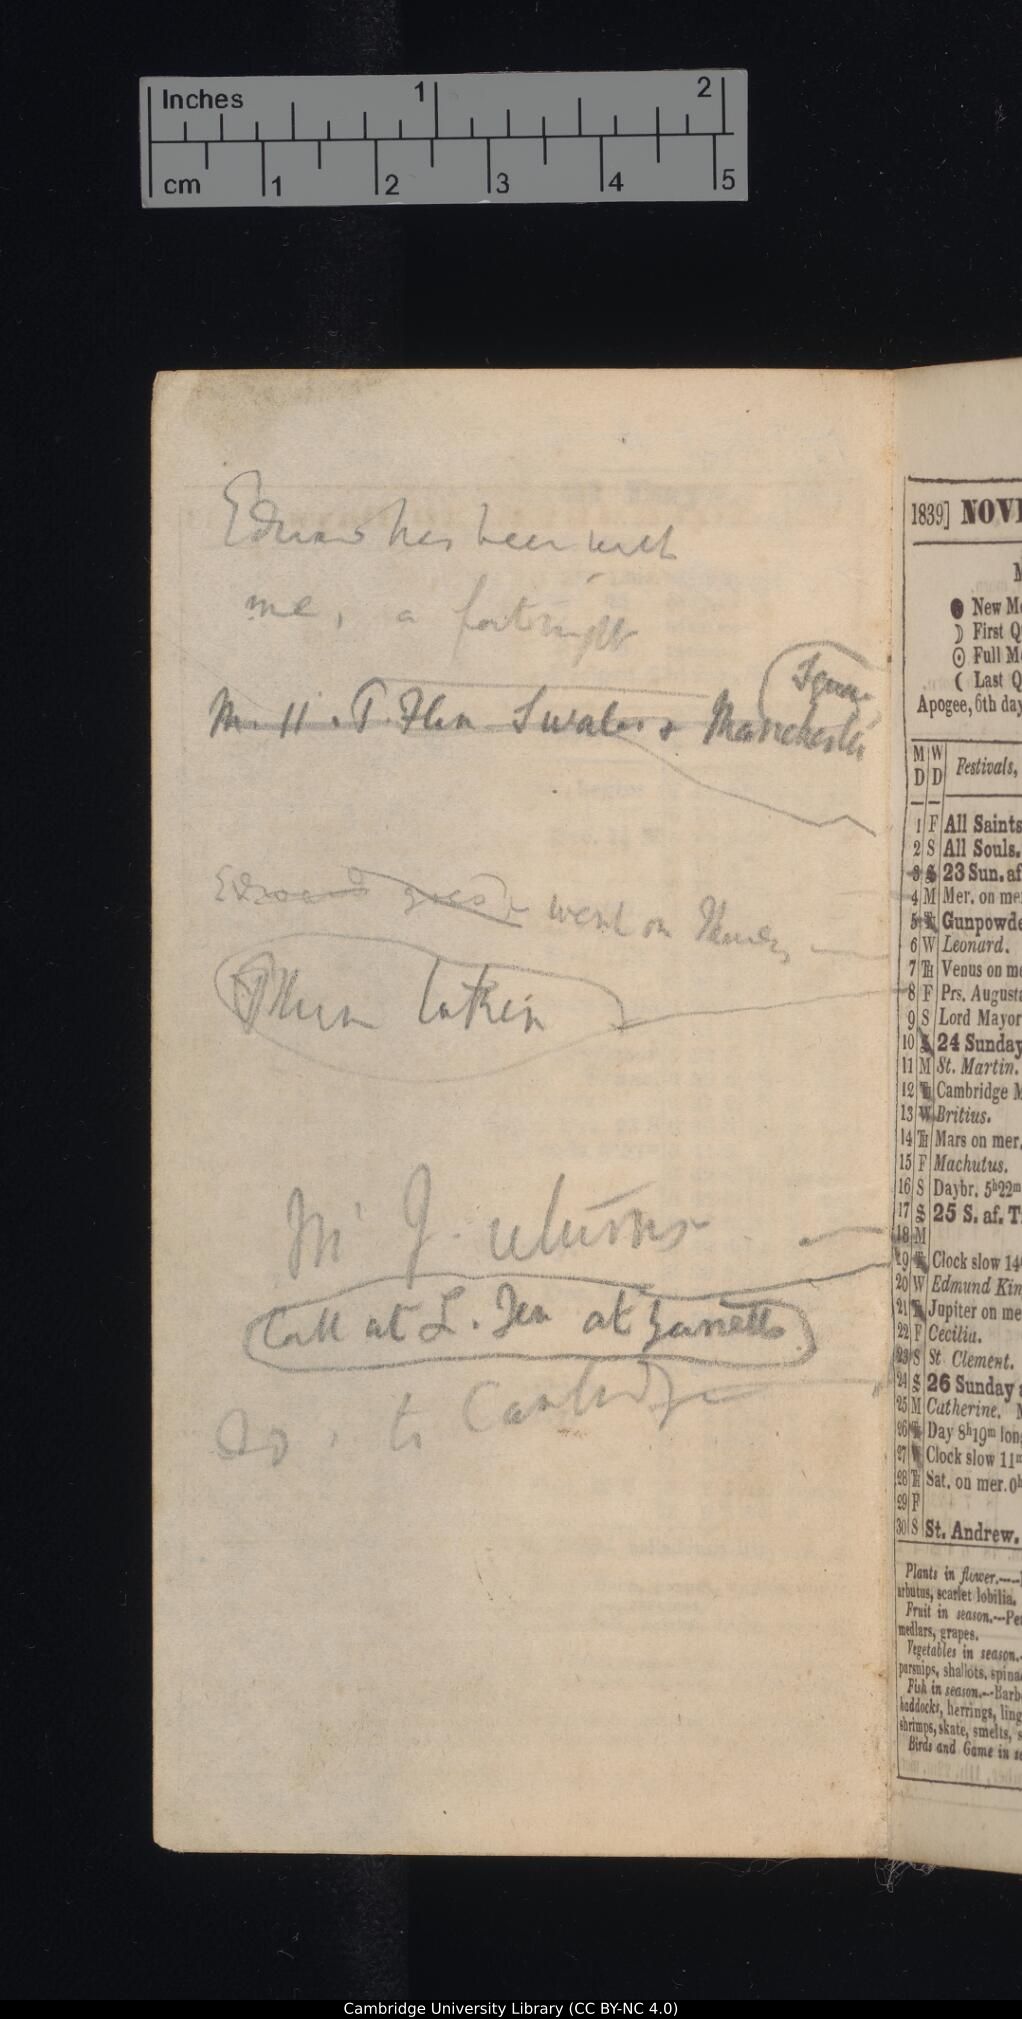 Inches 1 2
cm 1 2 3 4 5
Edward has been with
me, a fortnight
Manchester
Edward goes went on
Mr J. returns
Call at L. at
to Cambridge
1839] NOVE
New Mo
First Q
Full M
Last Q
Apogee, 6th day
M D W D Festivals,
1 F All Saints
2 S All Souls.
3 S 23 Sun. af
4 M Mer. on me
5 Gunpowde
6 W Leonard.
7 Th Venus on me
8 F Prs. Augusta
9 S Lord Mayor
10 S 24 Sunday
11 M St. Martin.
12 Tu Cambridge M
13 W Britius.
14 Th Mars on mer.
15 F Machutus.
16 S Daybr. 5h22m
17 S 25 S. af. T
18 M
19 Clock slow 14
20 W Edmund Kin
21 Jupiter on me
22 F Cecilia.
23 S St Clement.
24 S 26 Sunday a
25 M Catherine. M
26 Day 8h19m long
27 W Clock slow 11m
28 Th Sat. on mer. 0h
29 F
30 S St. Andrew.
Plants in flower.—
arbutus, scarlet lobilia.
Fruit in season.—Pe
medlars, grapes.
Vegetables in season.
parsnips, shallots, spina
Fish in season.—Barb
haddocks, herrings, ling
shrimps, skate, smelts, s
Birds and Game in se
Cambridge University Library (CC BY-NC 4.0)